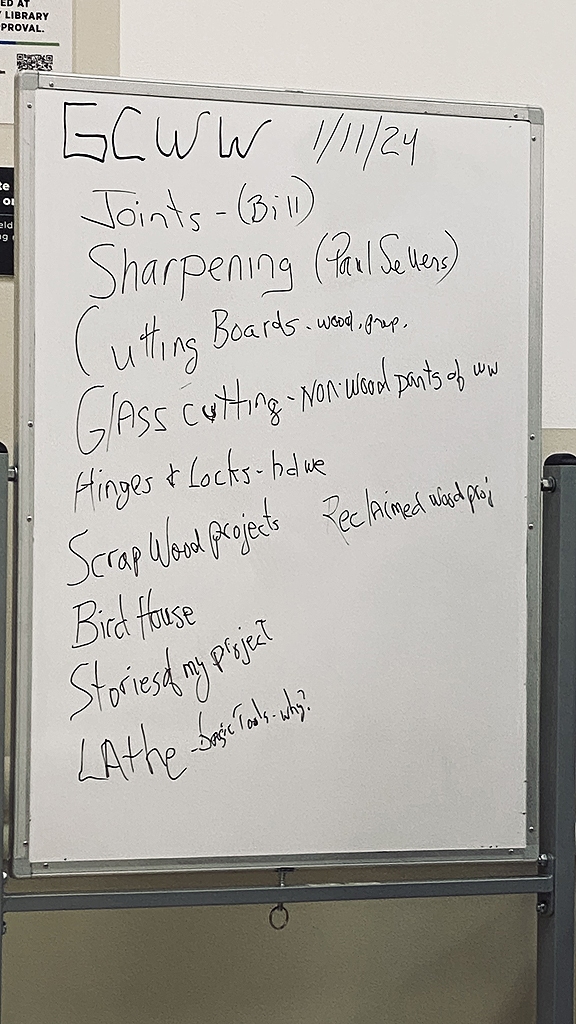 ED AT
LIBRARY
PROVAL.
GCWW 1/11/24
Joints - (Bill)
Sharpening (Paul Sellers)
Cutting Boards - wood, prep.
Glass cutting - Non-wood parts of ww
Hinges & Locks - hdwe
Scrap Wood projects Reclaimed wood proj
Bird House
Stories of my project
LAthe - basic Tools - why?